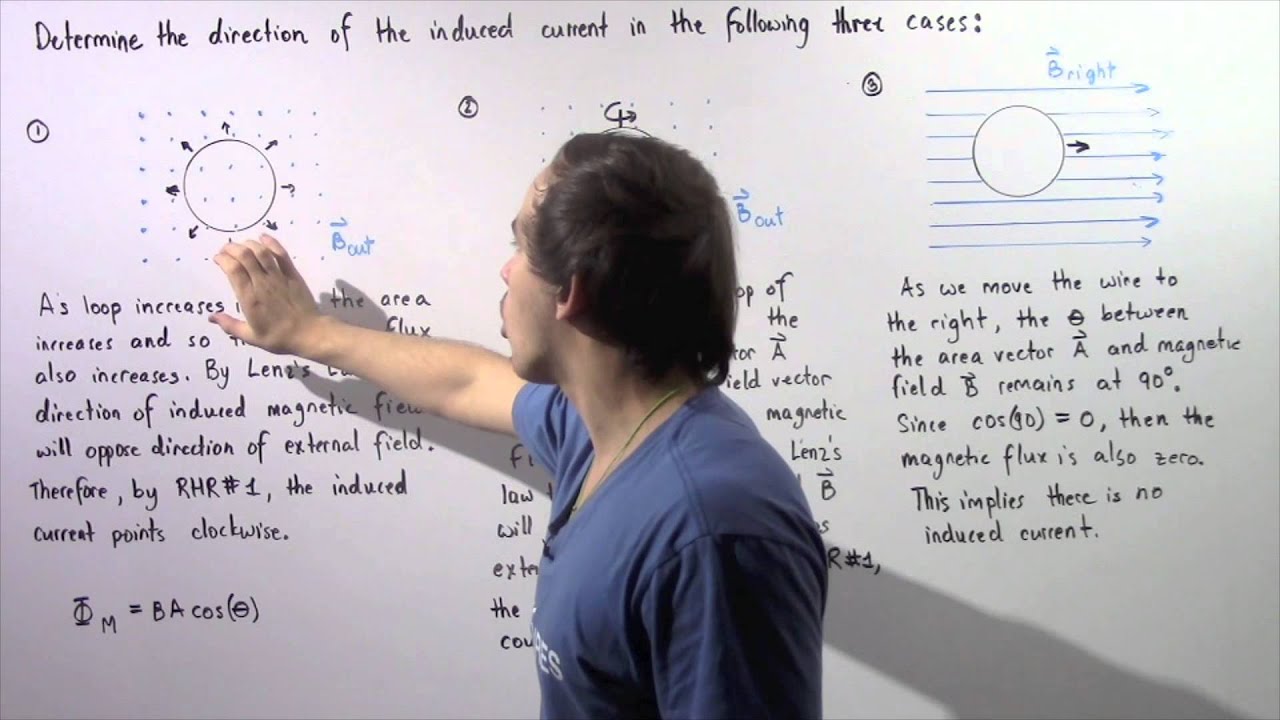 Determine the direction of the induced current in the following three cases:
①
B out
A's loop increases the area
increases and so flux
also increases. By Lenz's
direction of induced magnetic field
will oppose direction of external field.
Therefore, by RHR#1, the induced
current points clockwise.
Φ M = BA cos(θ)
②
B out
of
the
A
vector
magnetic
Lenz's
law B
will
R#1,
the
③
B right
As we move the wire to
the right, the θ between
the area vector A and magnetic
field B remains at 90°.
Since cos(90) = 0, then the
magnetic flux is also zero.
This implies there is no
induced current.